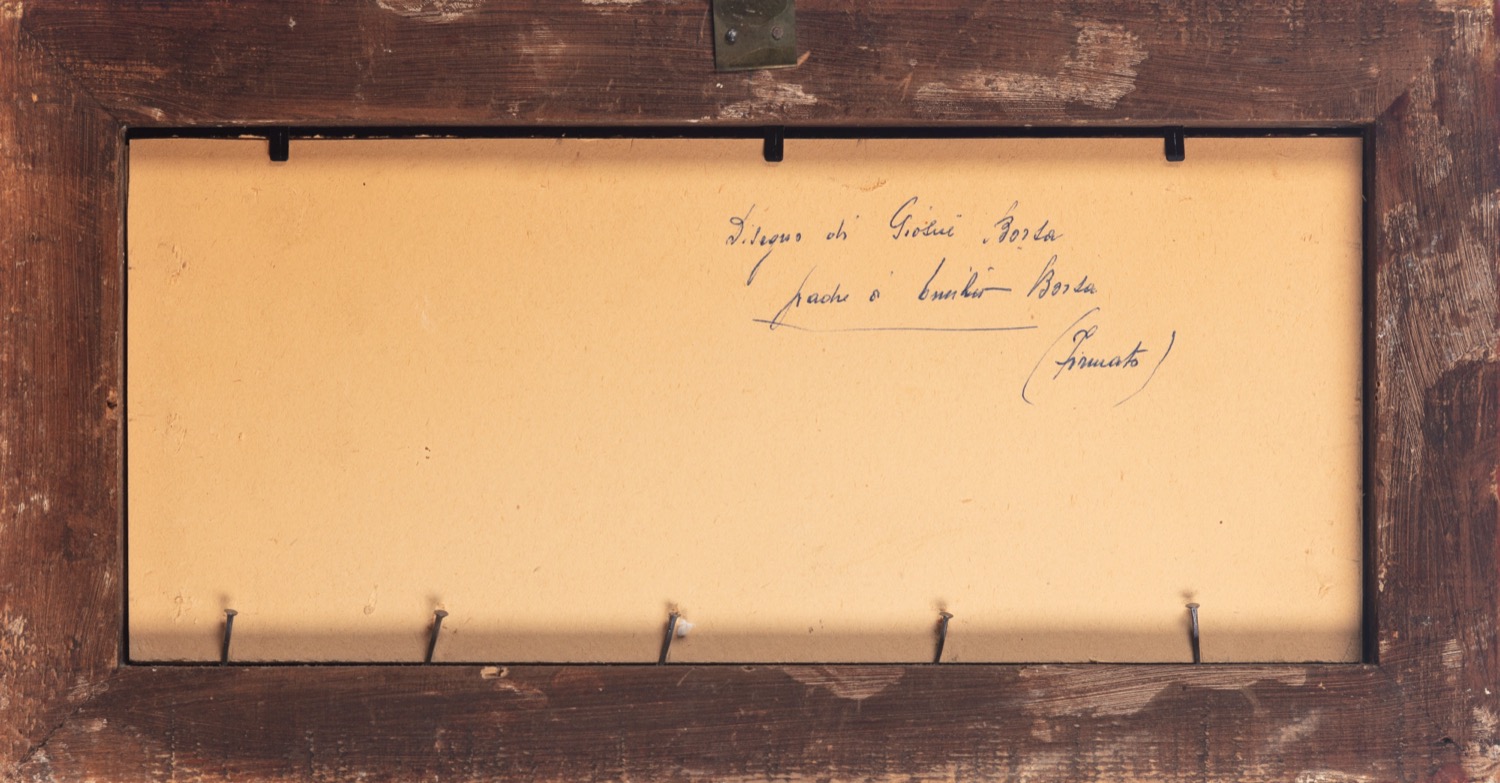 Disegno di Giosuè Borsa
padre di Emilio Borsa
(Firmato)